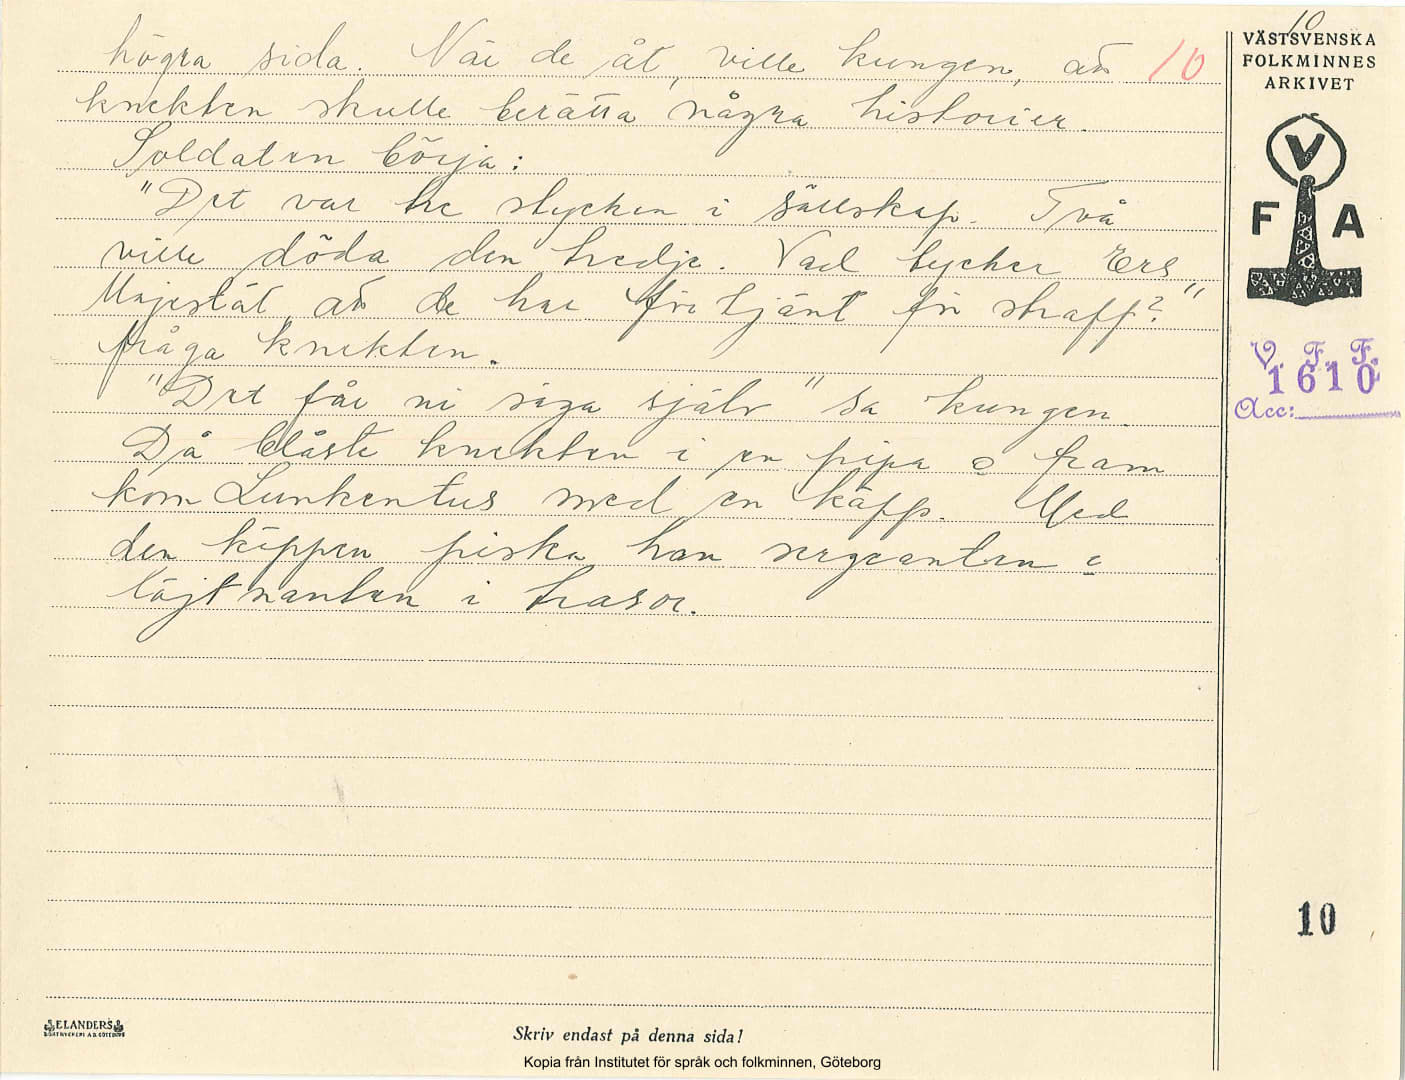 10
högra sida. När de åt, ville kungen, att 10
knekten skulle berätta några historier.
Soldaten börja:
"Det var tre stycken i sällskap. Två
ville döda den tredje. Vad tycker Ers
Majestät, att de har förtjänt för straff?"
fråga knekten.
"Det får ni säga själv" sa kungen.
Då blåste knekten i en pipa o fram
kom Lunkentus med en käpp. Med
den käppen piska han sergeanten o
löjtnanten i trasor.
VÄSTSVENSKA
FOLKMINNES
ARKIVET
V
F A
V. F. F.
1610
Acc:
10
ELANDERS
Skriv endast på denna sida!
Kopia från Institutet för språk och folkminnen, Göteborg